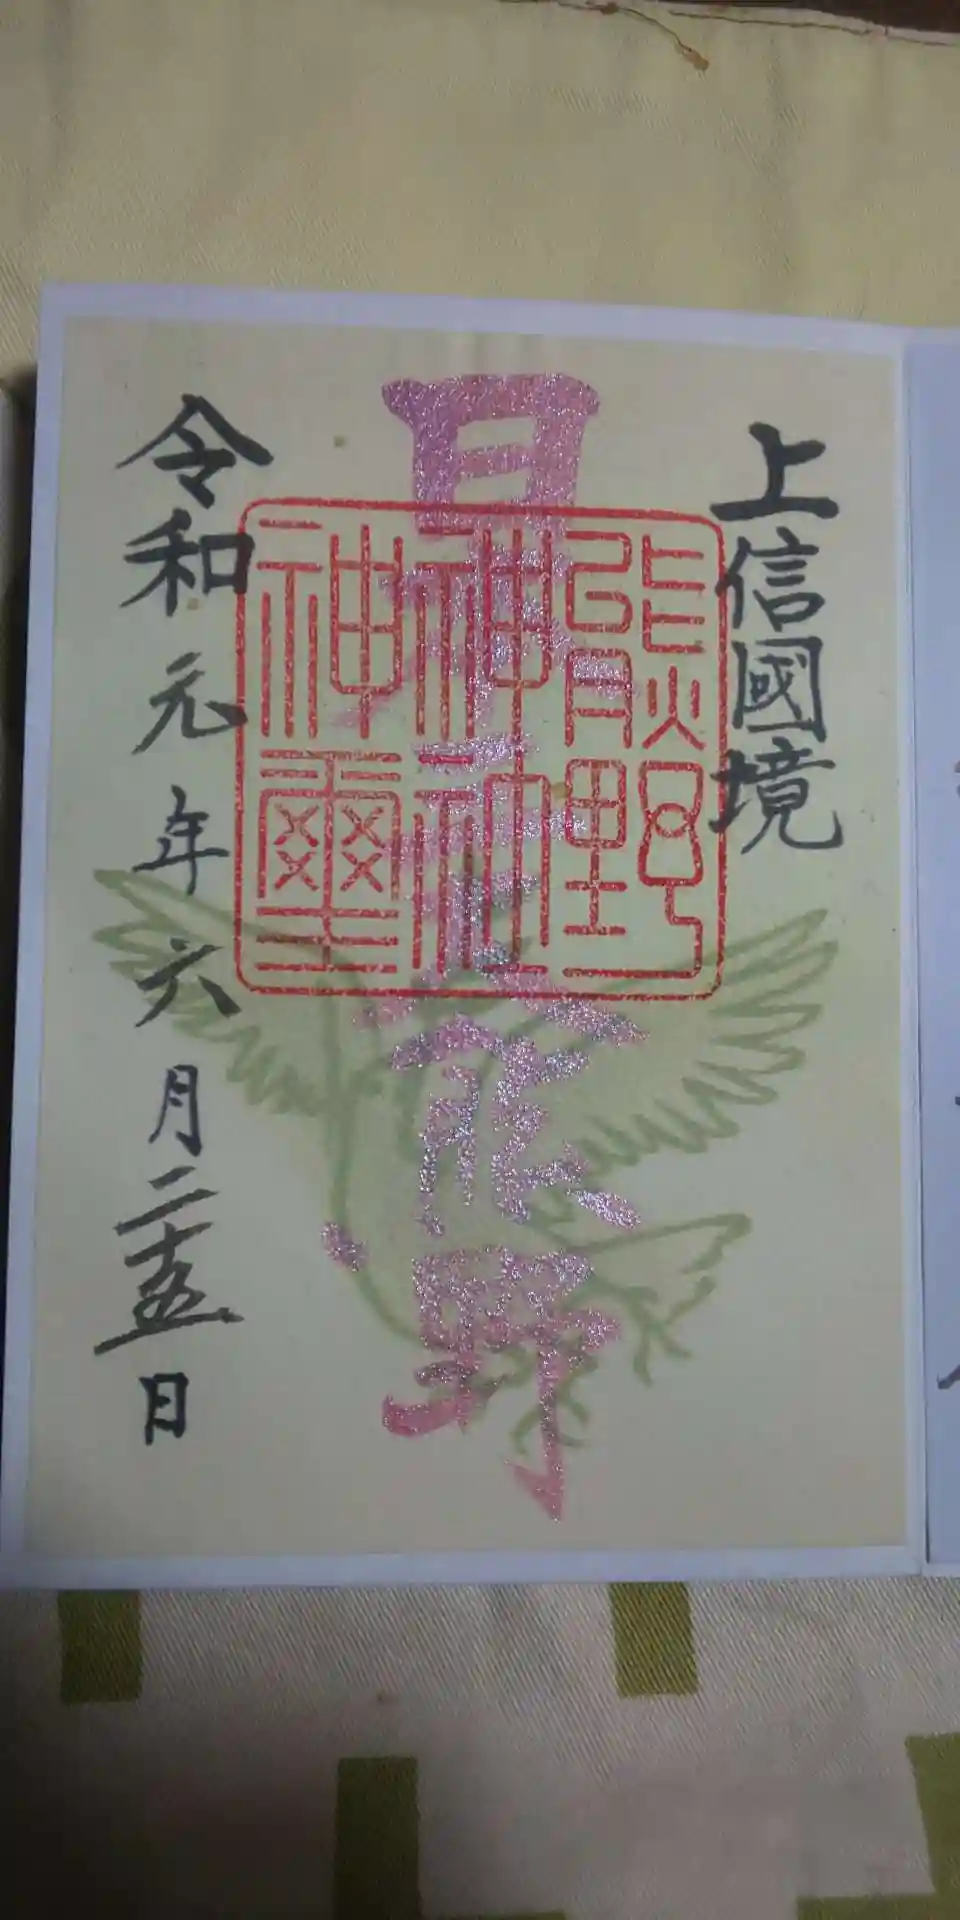 上信國境
日本三大熊野
熊野
神社
神璽
令和元年六月二十五日